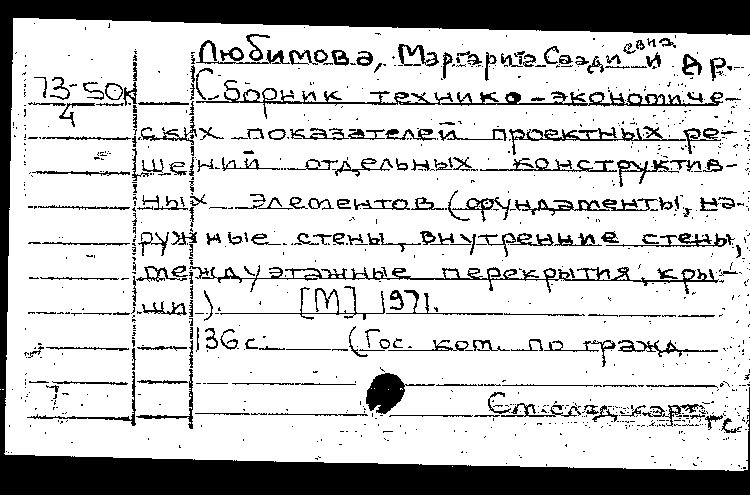 Любимова, Маргарита Саадиевна и др.
73-50к
4
Сборник технико-экономиче-
ских показателей проектных ре-
шений отдельных конструктив-
ных элементов (фундаменты, на-
ружные стены, внутренние стены,
междуэтажные перекрытия, кры-
ши). [М], 1971.
136 с. (Гос. ком. по гражд.
См. след. карт.